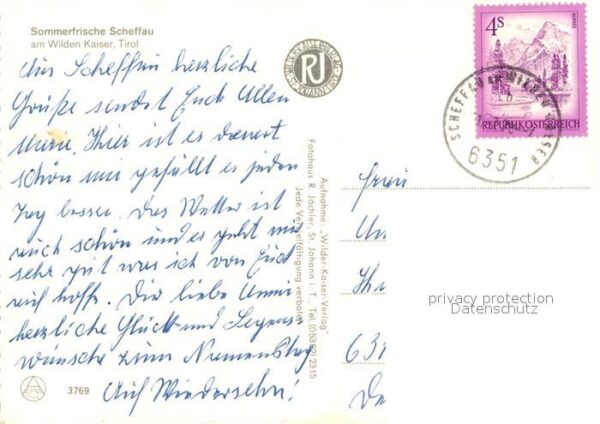 Sommerfrische Scheffau
am Wilden Kaiser, Tirol
Aus Scheffau herzliche
Grüße sendet Euch Allen
Marie. Hier ist es derart
schön mir gefällt es jeden
Tag besser. Das Wetter ist
auch schön und es geht mir
sehr gut was ich von Euch
auch hoffe. Dir liebe Anni
herzliche Glück und Segens-
wünsche zum Namenstag
Auf Wiedersehn!
3769
RJ
Aufnahme: "Wilder-Kaiser-Verlag"
Fotohaus R. Jöchler, St. Johann i. T., Tel. (05352) 2315
Jede Vervielfältigung verboten
4S
REPUBLIK ÖSTERREICH
SCHEFFAU AM WILDEN KAISER
6351
Frau
Ih
631
De
privacy protection
Datenschutz